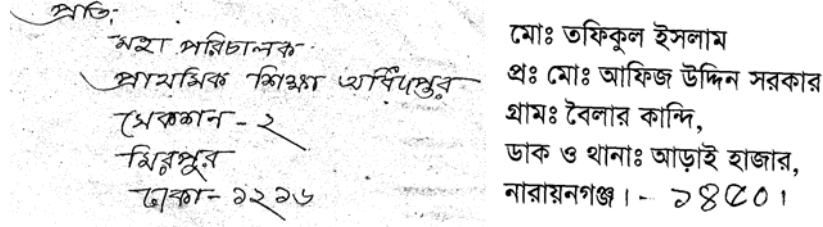 প্রতি:
মহা পরিচালক
প্রাথমিক শিক্ষা অধিদপ্তর
সেকশন - ২
মিরপুর
ঢাকা - ১২১৬
মোঃ তফিকুল ইসলাম
প্রঃ মোঃ আফিজ উদ্দিন সরকার
গ্রামঃ বৈলার কান্দি,
ডাক ও থানাঃ আড়াই হাজার,
নারায়নগঞ্জ। - ১৪৫০।